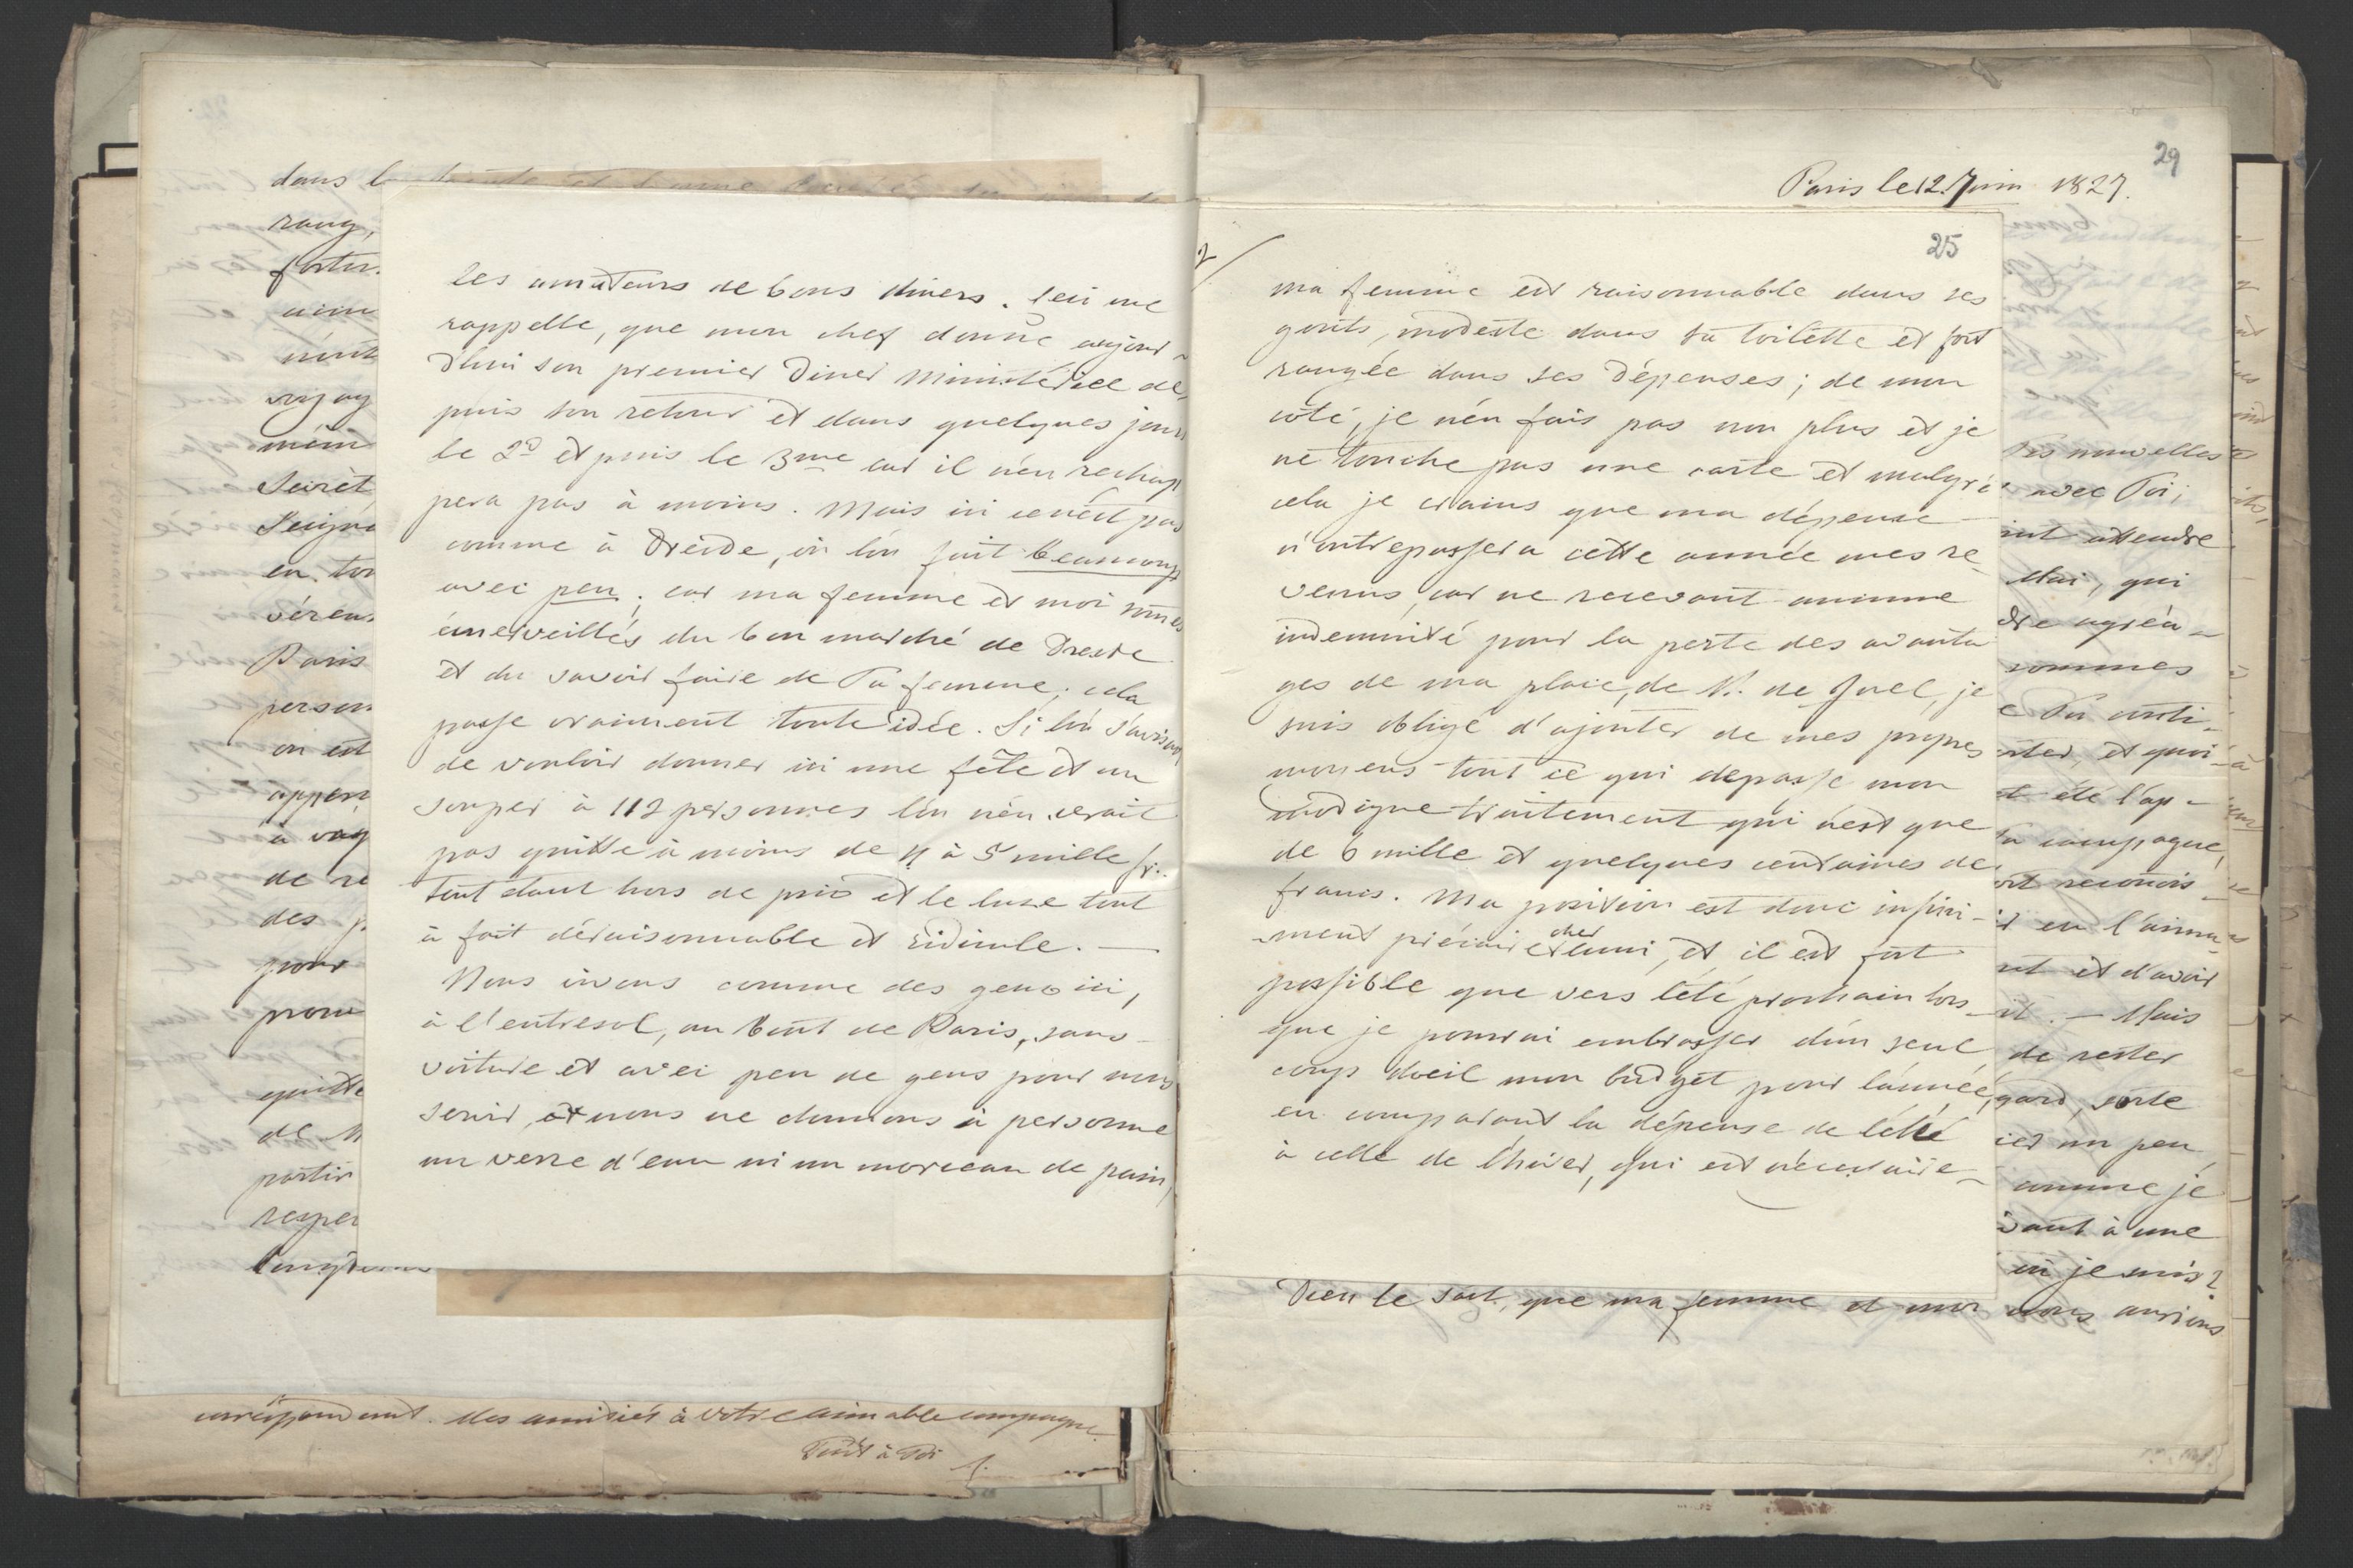 dans l
rang,
fortu
aim
n'ont
voyag
mêm
Secrét
Seigne
en tou
véreu
Paris
person
on est
appart
à vo
de re
des p
pour
prom
quitte
de M
partir
respec
longtems
les amateurs de bons diners. Ceci me
rappelle, que mon chef donne aujour-
d'hui son premier diner ministériel de-
puis son retour et dans quelques jours
le 2d et puis le 3me car il n'en rechap
pera pas à moins. Mais ici ce n'est pas
comme à Dresde, où l'on fait beaucoup
avec peu; car ma femme et moi somes
émerveillés du bon marché de Dresde
et du savoir faire de Ta femme; cela
passe vraiment toute idée. Si l'on s'avisait
de vouloir donner ici une fête et un
souper à 112 personnes l'on n'en serait
pas quitte à moins de 4 à 5 mille fr.
tout étant hors de prix et le luxe tout
à fait déraisonnable et ridicule. —
Nous vivons comme des gens ici,
à l'entresol, au bout de Paris, sans
voiture et avec peu de gens pour nous
servir, et nous ne donnons à personne
un verre d'eau ni un morceau de pain,
correspondant. Mes amitiés à votre aimable compagne.
Tout à Toi
29
Paris le 12. Juin 1827.
25
2/
ma femme est raisonnable dans ses
gouts, modeste dans sa toilette et fort
rangée dans ses dépenses; de mon
coté, je n'en fais pas non plus et je
ne touche pas une carte et malgré
cela je crains que ma dépense
n'outrepassera cette année mes re-
venus, car ne recevant aucune
indemnité pour la perte des avanta
ges de ma place, de M. de Juel, je
suis obligé d'ajouter de mes propres
moyens tout ce qui depasse mon
modique traitement qui n'est que
de 6 mille et quelques centaines de
francs. Ma position est donc infini-
-ment précaire cher ami, et il est fort
possible que vers l'été prochain lors-
que je pourrai embrasser d'un seul
coup d'oeil mon budget pour l'année,
en comparant la dépense de l'été
à celle de l'hiver, qui est nécessaire-
Tes nouvelles
avec Toi;
attendre
Mai, qui
dre agréa-
sommes
Ta anti-
et quoi-
été l'ap-
Ta compagne,
reconois-
en l'aima-
et d'avoir
. — Mais
de rester
gard, sorte
un peu
comme je
à une
où je suis?
Dieu le sait, que ma femme et moi nous aurions